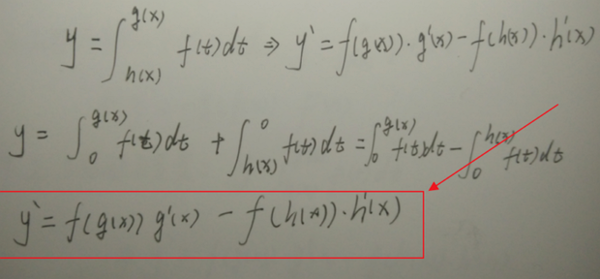 y = ∫_{h(x)}^{g(x)} f(t)dt ⇒ y' = f(g(x))·g'(x) - f(h(x))·h'(x)
y = ∫_0^{g(x)} f(t)dt + ∫_{h(x)}^0 f(t)dt = ∫_0^{g(x)} f(t)dt - ∫_0^{h(x)} f(t)dt
y' = f(g(x)) g'(x) - f(h(x))·h'(x)